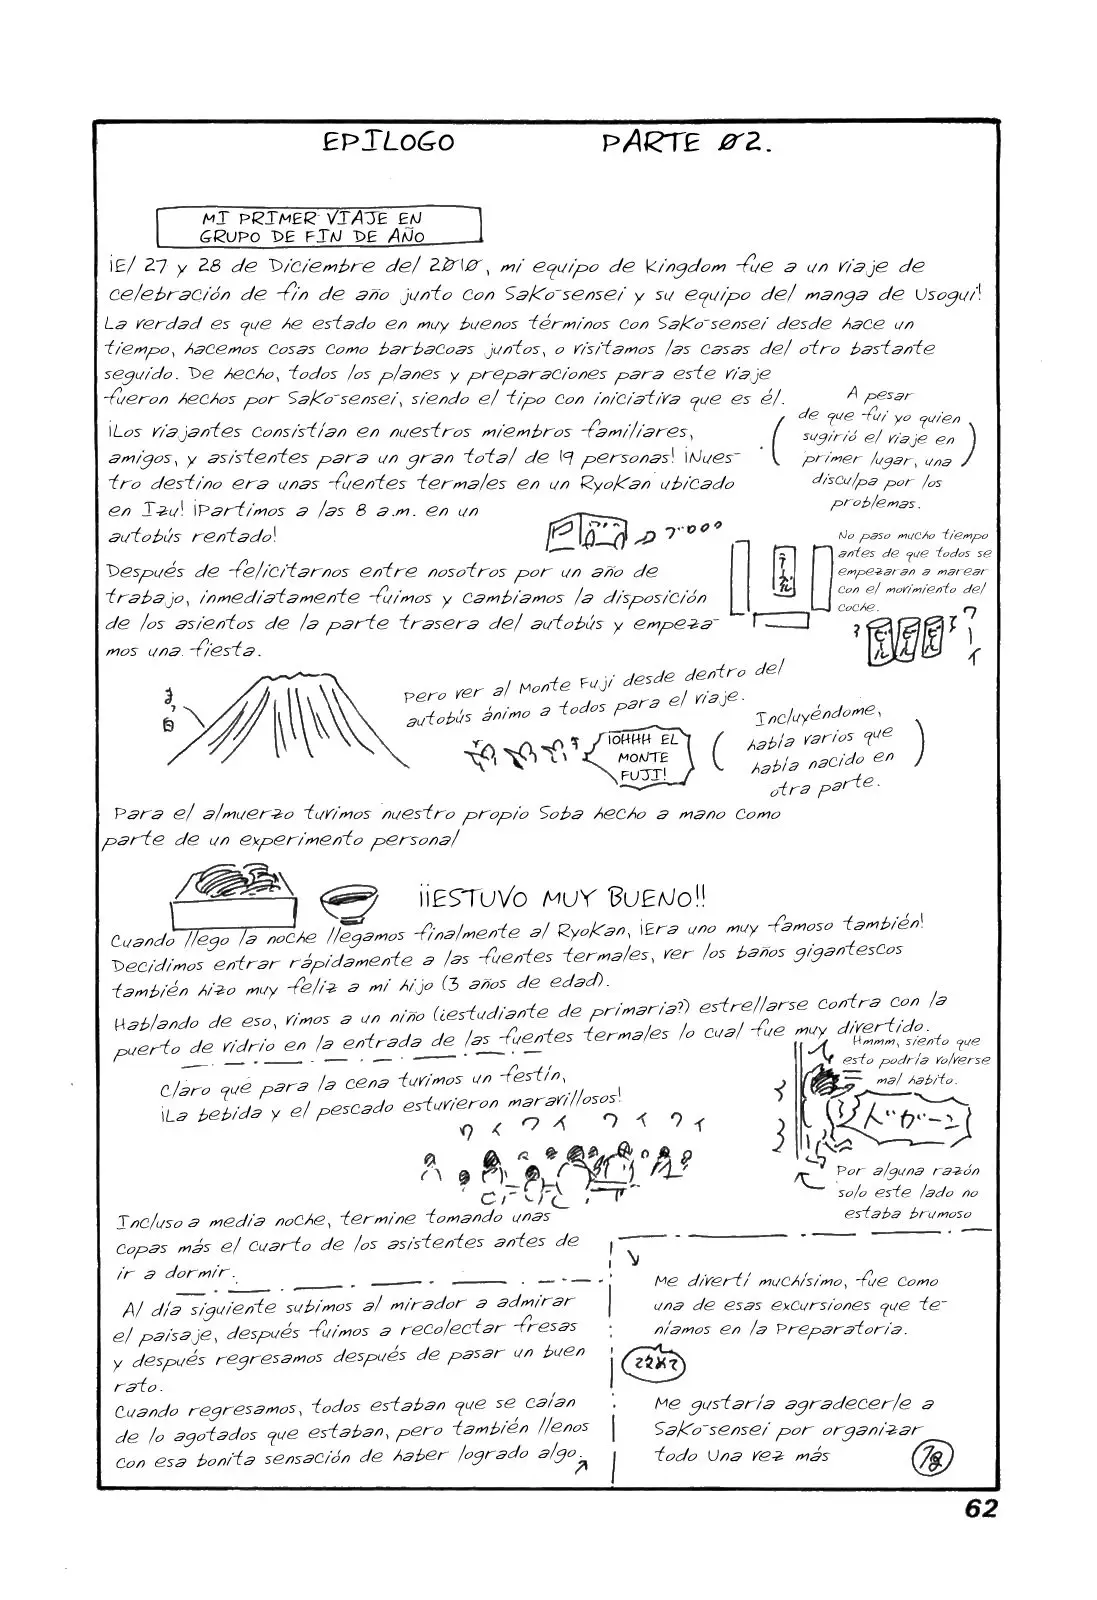 EPILOGO PARTE 02.
MI PRIMER VIAJE EN
GRUPO DE FIN DE AÑO
¡El 27 y 28 de Diciembre del 2010, mi equipo de Kingdom fue a un viaje de
celebración de fin de año junto con Sako-sensei y su equipo del manga de Usogui!
La verdad es que he estado en muy buenos términos con Sako-sensei desde hace un
tiempo, hacemos cosas como barbacoas juntos, o visitamos las casas del otro bastante
seguido. De hecho, todos los planes y preparaciones para este viaje
fueron hechos por Sako-sensei, siendo el tipo con iniciativa que es él.
A pesar
de que fui yo quien
sugirió el viaje en
primer lugar, una
disculpa por los
problemas.
¡Los viajantes consistían en nuestros miembros familiares,
amigos, y asistentes para un gran total de 19 personas! ¡Nues-
tro destino era unas fuentes termales en un Ryokan ubicado
en Izu! ¡Partimos a las 8 a.m. en un
autobús rentado!
Después de felicitarnos entre nosotros por un año de
trabajo, inmediatamente fuimos y cambiamos la disposición
de los asientos de la parte trasera del autobús y empeza-
mos una fiesta.
No paso mucho tiempo
antes de que todos se
empezaran a marear
con el movimiento del
coche.
ビール ビール ビール
Pero ver al Monte Fuji desde dentro del
autobús ánimo a todos para el viaje.
¡OHHH EL
MONTE
FUJI!
(Incluyéndome,
había varios que
había nacido en
otra parte.)
Para el almuerzo tuvimos nuestro propio Soba hecho a mano como
parte de un experimento personal
¡¡ESTUVO MUY BUENO!!
Cuando llego la noche llegamos finalmente al Ryokan, ¡Era uno muy famoso también!
Decidimos entrar rápidamente a las fuentes termales, ver los baños gigantescos
también hizo muy feliz a mi hijo (3 años de edad).
Hablando de eso, vimos a un niño (¿estudiante de primaria?) estrellarse contra con la
puerto de vidrio en la entrada de las fuentes termales lo cual fue muy divertido.
Hmmm, siento que
esto podría volverse
mal habito.
Claro que para la cena tuvimos un festín,
¡La bebida y el pescado estuvieron maravillosos!
ワイ ワイ ワイ ワイ
Por alguna razón
solo este lado no
estaba brumoso
Incluso a media noche, termine tomando unas
copas más el cuarto de los asistentes antes de
ir a dormir.
Al día siguiente subimos al mirador a admirar
el paisaje, después fuimos a recolectar fresas
y después regresamos después de pasar un buen
rato.
Cuando regresamos, todos estaban que se caían
de lo agotados que estaban, pero también llenos
con esa bonita sensación de haber logrado algo.
Me divertí muchísimo, fue como
una de esas excursiones que te-
níamos en la Preparatoria.
Me gustaría agradecerle a
Sako-sensei por organizar
todo Una vez más
62